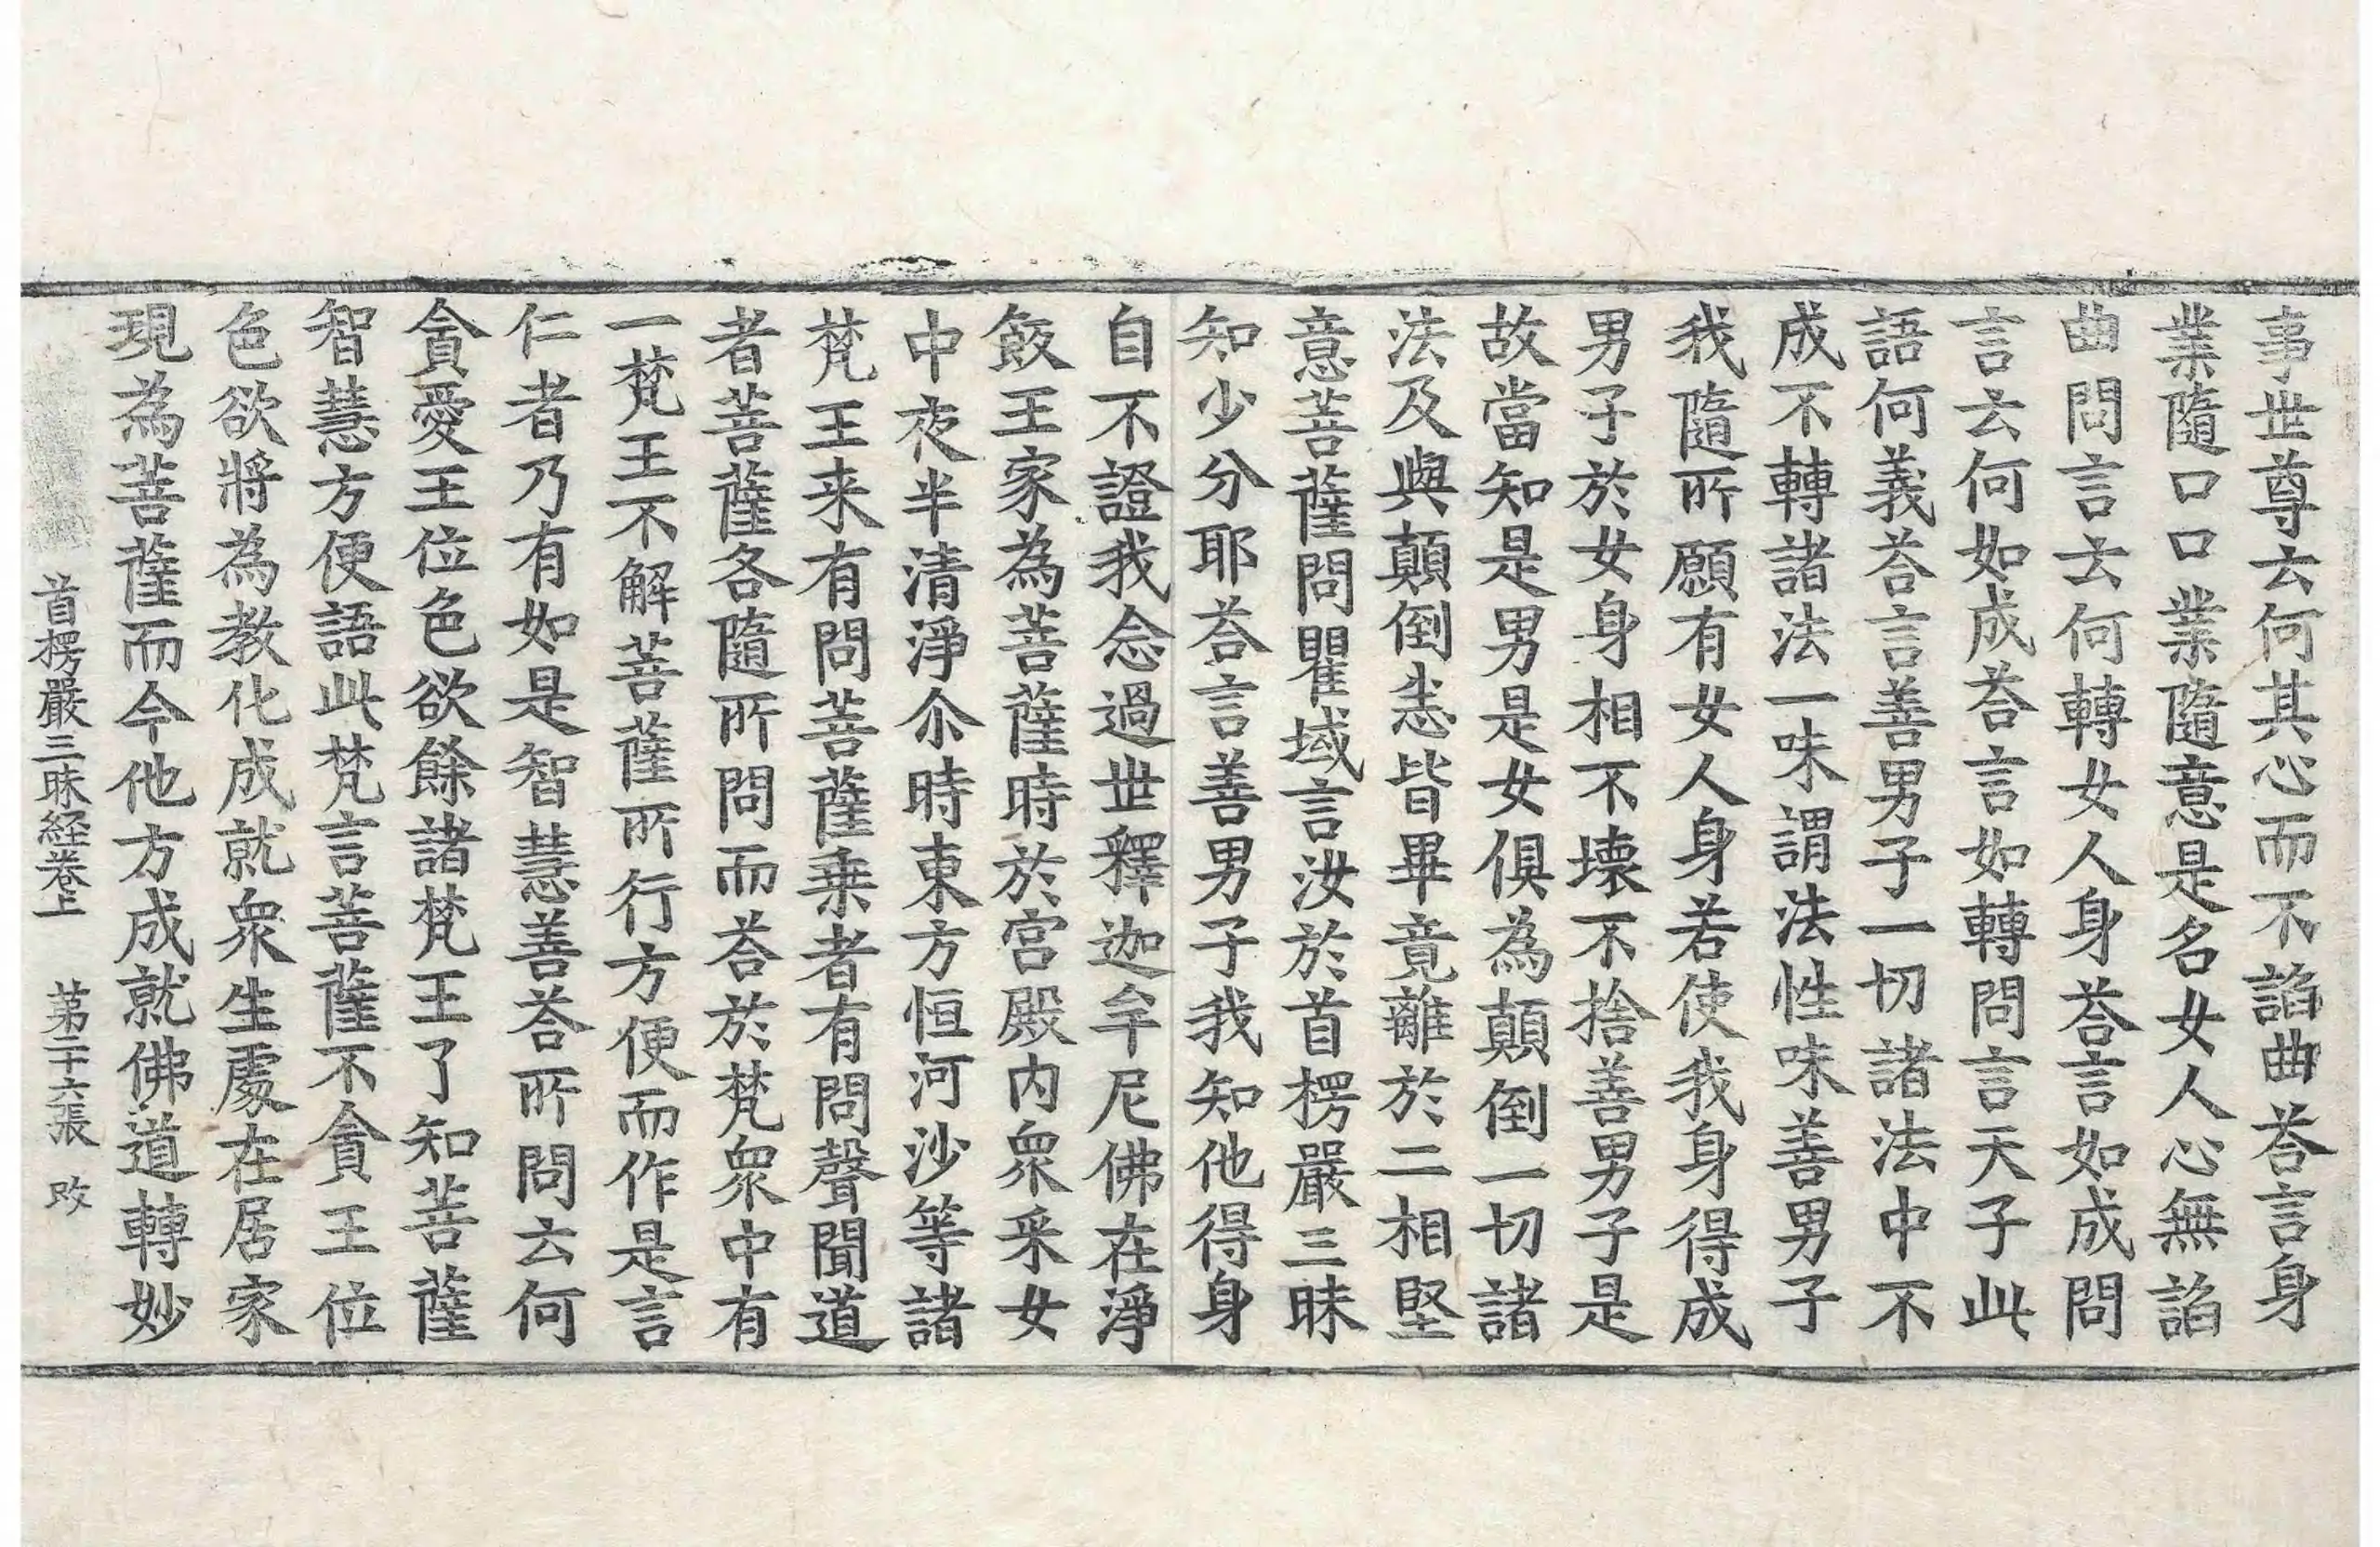 事世尊云何其心而不諂曲荅言身
業隨口口業隨意是名女人心無諂
曲問言云何轉女人身荅言如成問
言云何如成荅言如轉問言天子此
語何義荅言善男子一切諸法中不
成不轉諸法一味謂法性味善男子
我隨所願有女人身若使我身得成
男子於女身相不壞不捨善男子是
故當知是男是女俱為顛倒一切諸
法及與顛倒悉皆畢竟離於二相堅
意菩薩問瞿域言汝於首楞嚴三昧
知少分耶荅言善男子我知他得身
自不證我念過世釋迦牟尼佛在淨
飯王家為菩薩時於宮殿內衆采女
中夜半清淨尒時東方恒河沙等諸
梵王来有問菩薩乗者有問聲聞道
者菩薩各隨所問而荅於梵衆中有
一梵王不解菩薩所行方便而作是言
仁者乃有如是智慧善荅所問云何
貪愛王位色欲餘諸梵王了知菩薩
智慧方便語此梵言菩薩不貪王位
色欲將為教化成就衆生處在居家
現為菩薩而今他方成就佛道轉妙
首楞嚴三昧経卷上　第二十六張　改